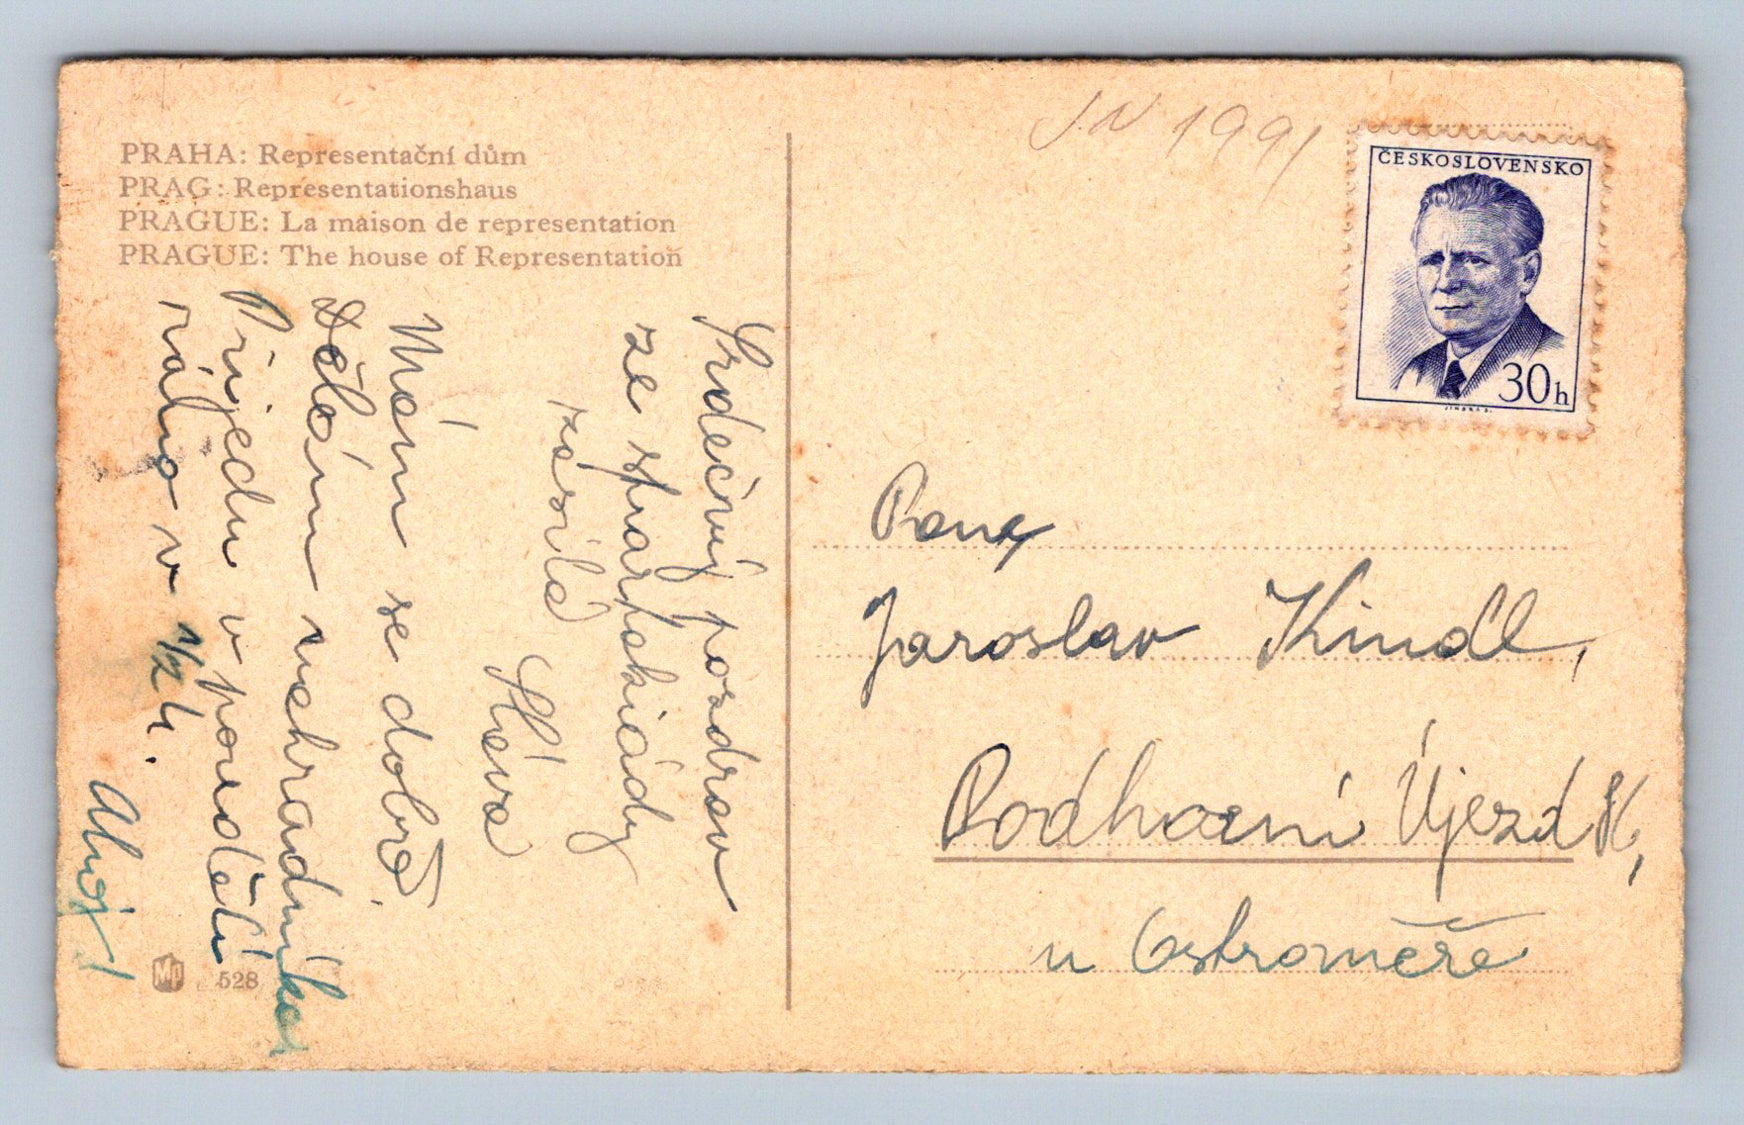 PRAHA: Representační dům
PRAG: Representationshaus
PRAGUE: La maison de representation
PRAGUE: The house of Representation
Srdečný pozdrav
ze spartakiády
zasílá
Sláva
Mám se dobře.
Dělám náhradníka
Přijedu v pondělí
ráno v 1/2 4.
Ahoj!
528
JN 1991
ČESKOSLOVENSKO
30h
Pana
Jaroslav Kindl,
Podhorní Újezd
u Ostroměře